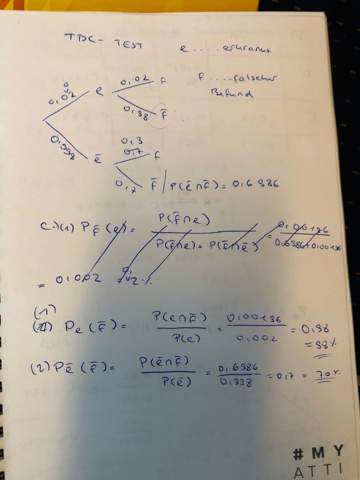 TDC - TEST
e ..... erkrankt
0,02 e 0,02 f
f .... falscher
Befund
0,98 f̄
0,998 ē 0,3 f
0,7
0,7 f̄ | P(ē∩f̄) = 0,6986
c.)(1) P_f̄(e) = P(f̄∩e) / P(f̄∩e) + P(ē∩f̄) = 0,00196 / 0,6986+0,00196
= 0,002 0,2%
(1) P_e(f̄) = P(e∩f̄) / P(e) = 0,00196 / 0,002 = 0,98
= 98%
(2) P_ē(f̄) = P(ē∩f̄) / P(ē) = 0,6986 / 0,998 = 0,7 = 70%
#MY
ATTI